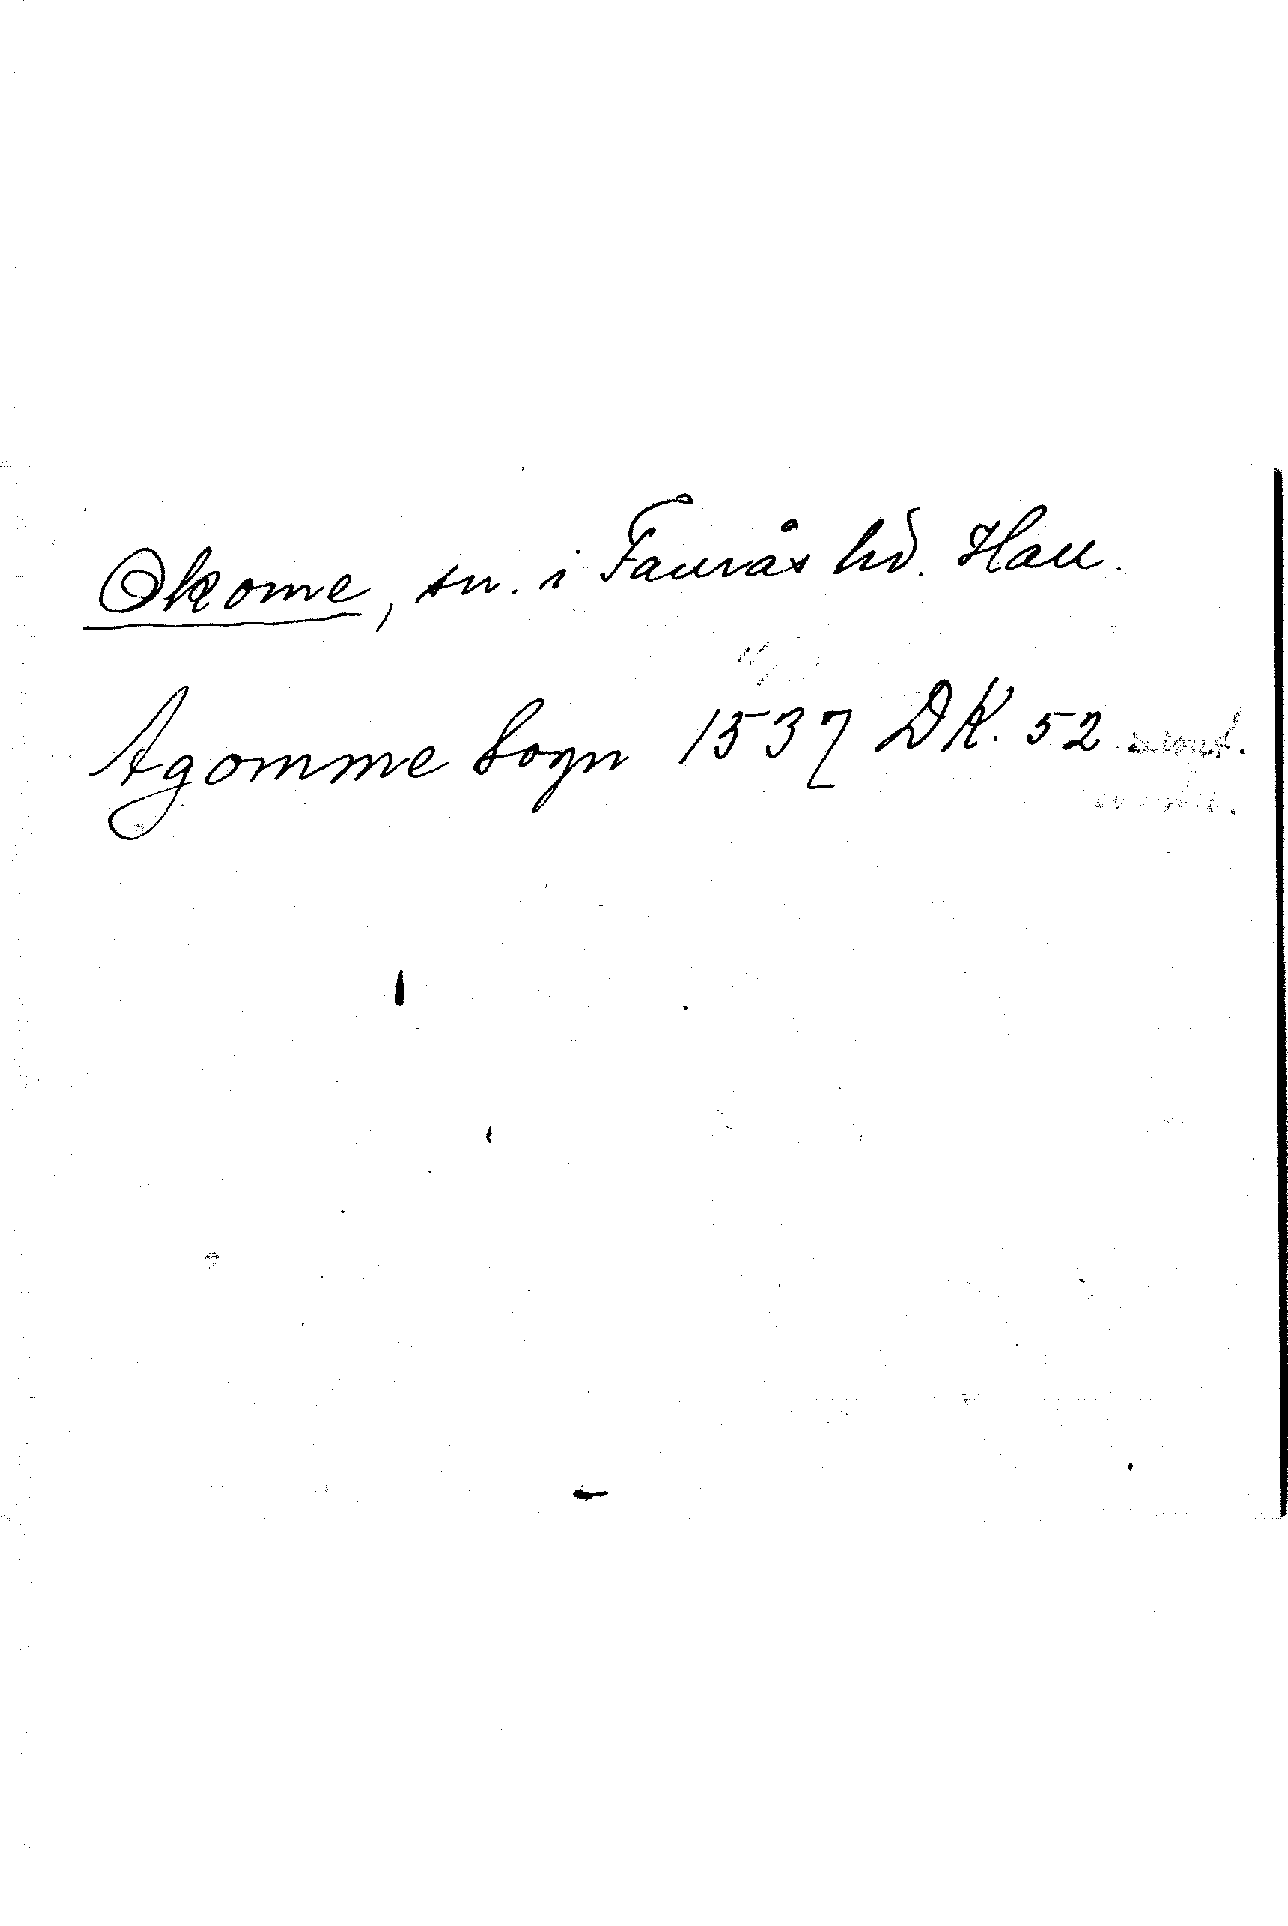 Okome, sn. i Faurås hd. Hall.
Agomme Sogn 1537 DK. 52